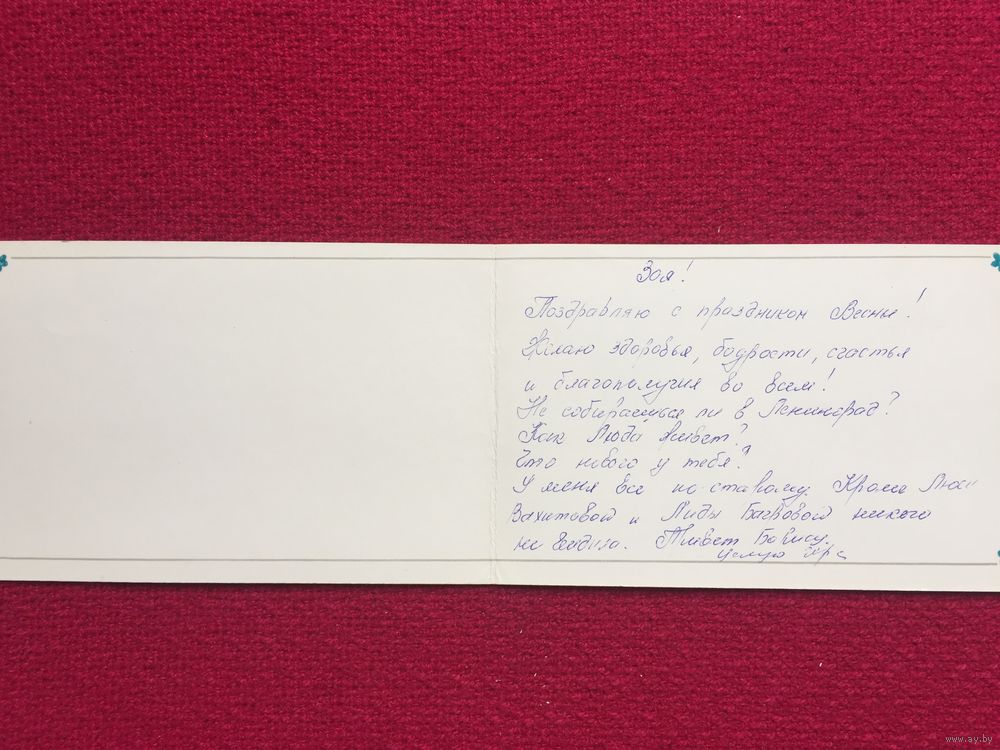 Зоя!
Поздравляю с праздником Весны!
Желаю здоровья, бодрости, счастья
и благополучия во всем!
Не собираешься ли в Ленинград?
Как Люда живет?
Что нового у тебя?
У меня все по-старому. Кроме Люси
Вахитовой и Лиды Багровой никого
не видела. Привет Борису.
Целую
www.ay.by